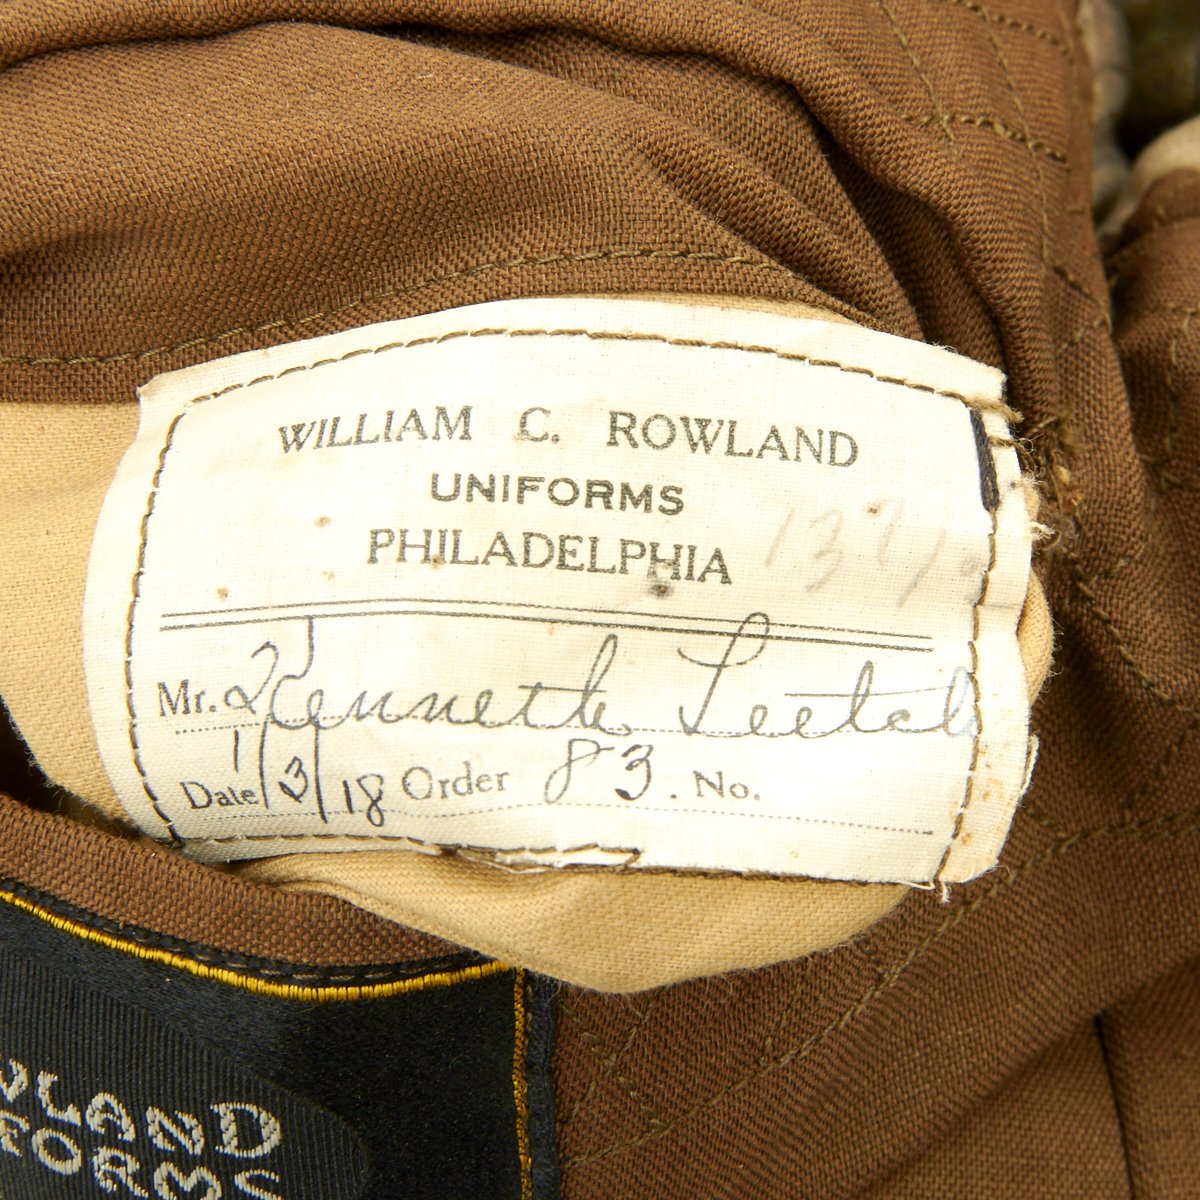 WILLIAM C. ROWLAND
UNIFORMS
PHILADELPHIA
Mr. Kenneth Leetch
Date 1/3/18 Order 83. No.
WLAND
FORMS